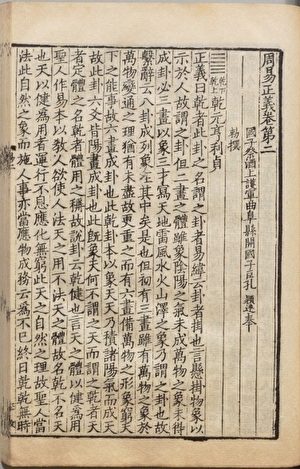 周易正義卷第二
國子祭酒上護軍曲阜縣開國子臣孔 穎達奉
勅撰
䷀乾下乾上乾元亨利貞
正義曰乾者此卦之名謂之卦者易緯云卦者掛也言懸掛物象以
示於人故謂之卦但二畫之體雖象陰陽之氣未成萬物之象未得
成卦必三畫以象三才寫天地雷風水火山澤之象乃謂之卦也故
繫辭云八卦成列象在其中矣是也但初有三畫雖有萬物之象於
萬物變通之理猶有未盡故更重之而有六畫備萬物之形象窮天
下之能事故六畫成卦也此乾卦本以象天天乃積諸陽氣而成天
故此卦六爻皆陽畫成卦也此既象天何不謂之天而謂之乾者天
者定體之名乾者體用之稱故說卦云乾健也言天之體以健為用
聖人作易本以教人欲使人法天之用不法天之體故名乾不名天
也天以健為用者運行不息應化無窮此天之自然之理故聖人當
法此自然之象而施人事亦當應物成務云為不已終日乾乾無時